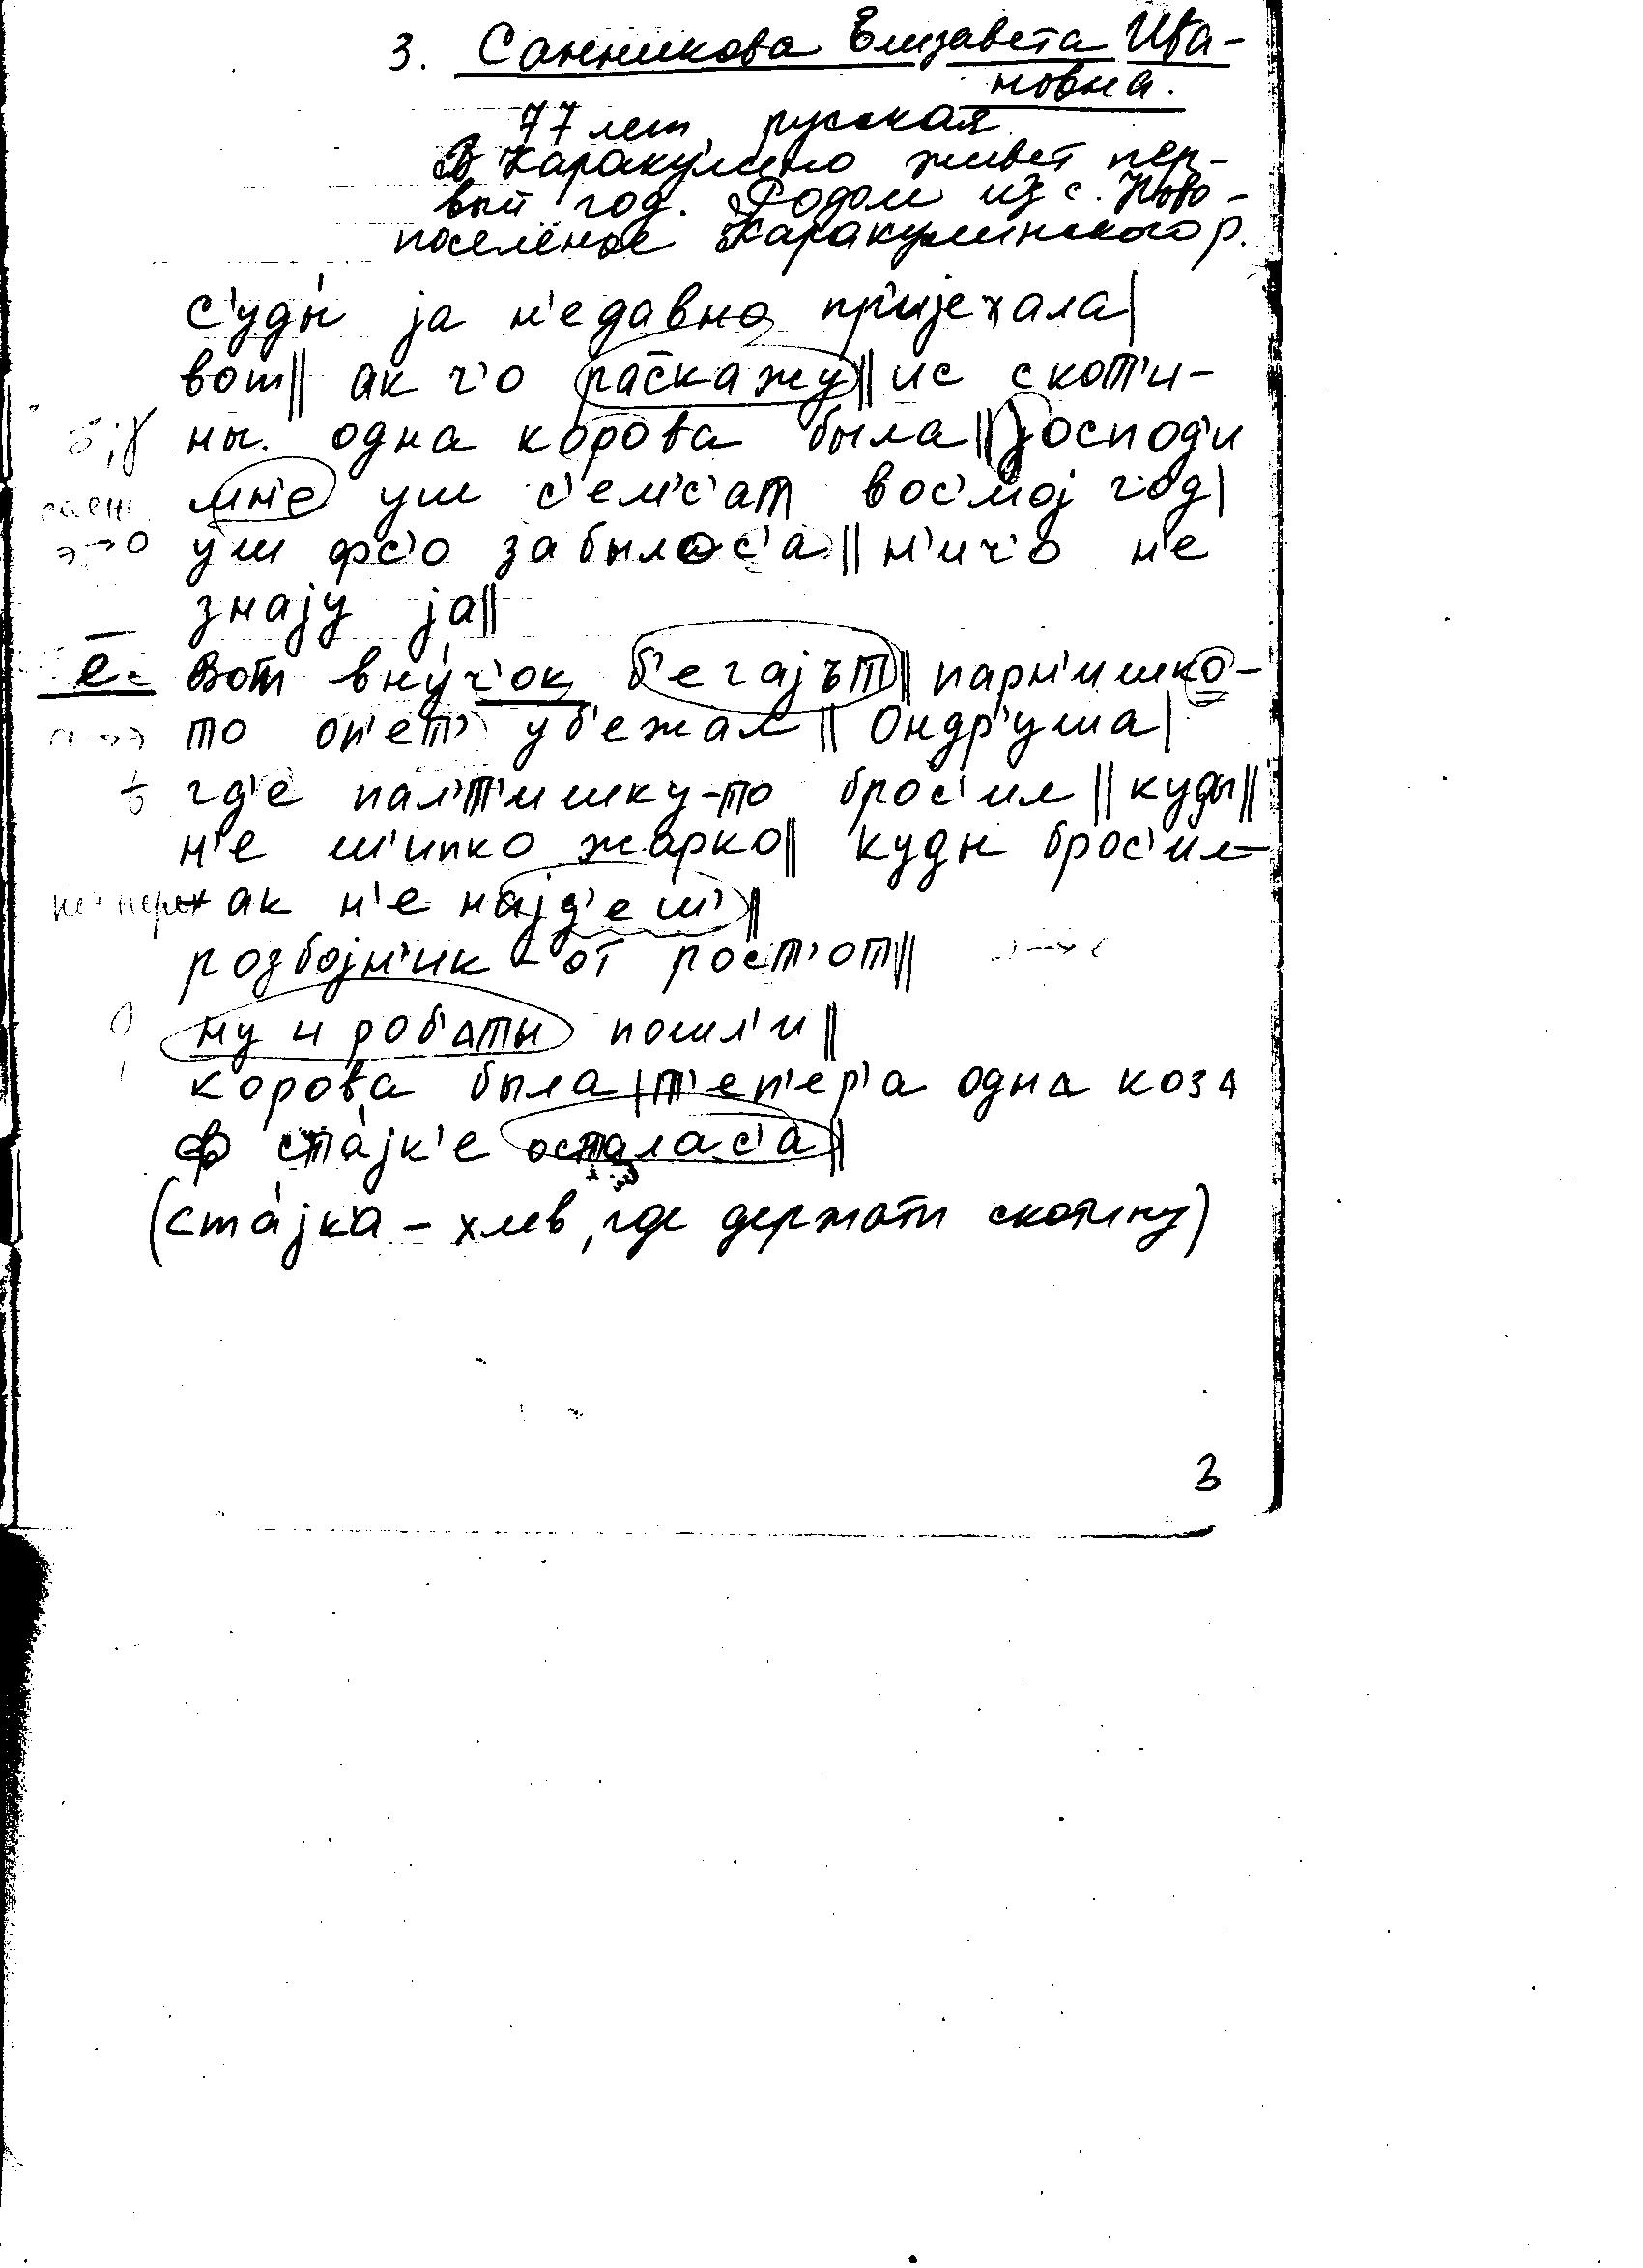 3. Санникова Елизавета Ива-
новна.
77 лет, русская
В Каракулино живет пер-
вый год. Родом из с. Ново-
поселенное Каракулинского р.
с'уды́ jа н'едавно пр'иjехала|
вот|| ак ч'о раскажу || ис скот'и-
ны. одна корова была || γоспод'и
мн'е уш с'ем'с'ат вос'моj год|
уш фс'о забылос'а || н'ич'о н'е
знаjу jа||
е. Вот вну́ч'ок б'егаjът || парн'ишко-
то оп'ет' уб'ежал || Ондр'уша|
гд'е пал'т'ишку-то брос'ил || куды||
н'е ш'ипко жарко|| куды брос'ил-
ак н'е наjд'еш'||
розбоjн'ик-от рост'от||
ну и роб'аты пошл'и ||
корова была | т'еп'ер'а одна коза
ф ста́jк'е осталас'а ||
(ста́jка – хлев, где держат скотину)
3